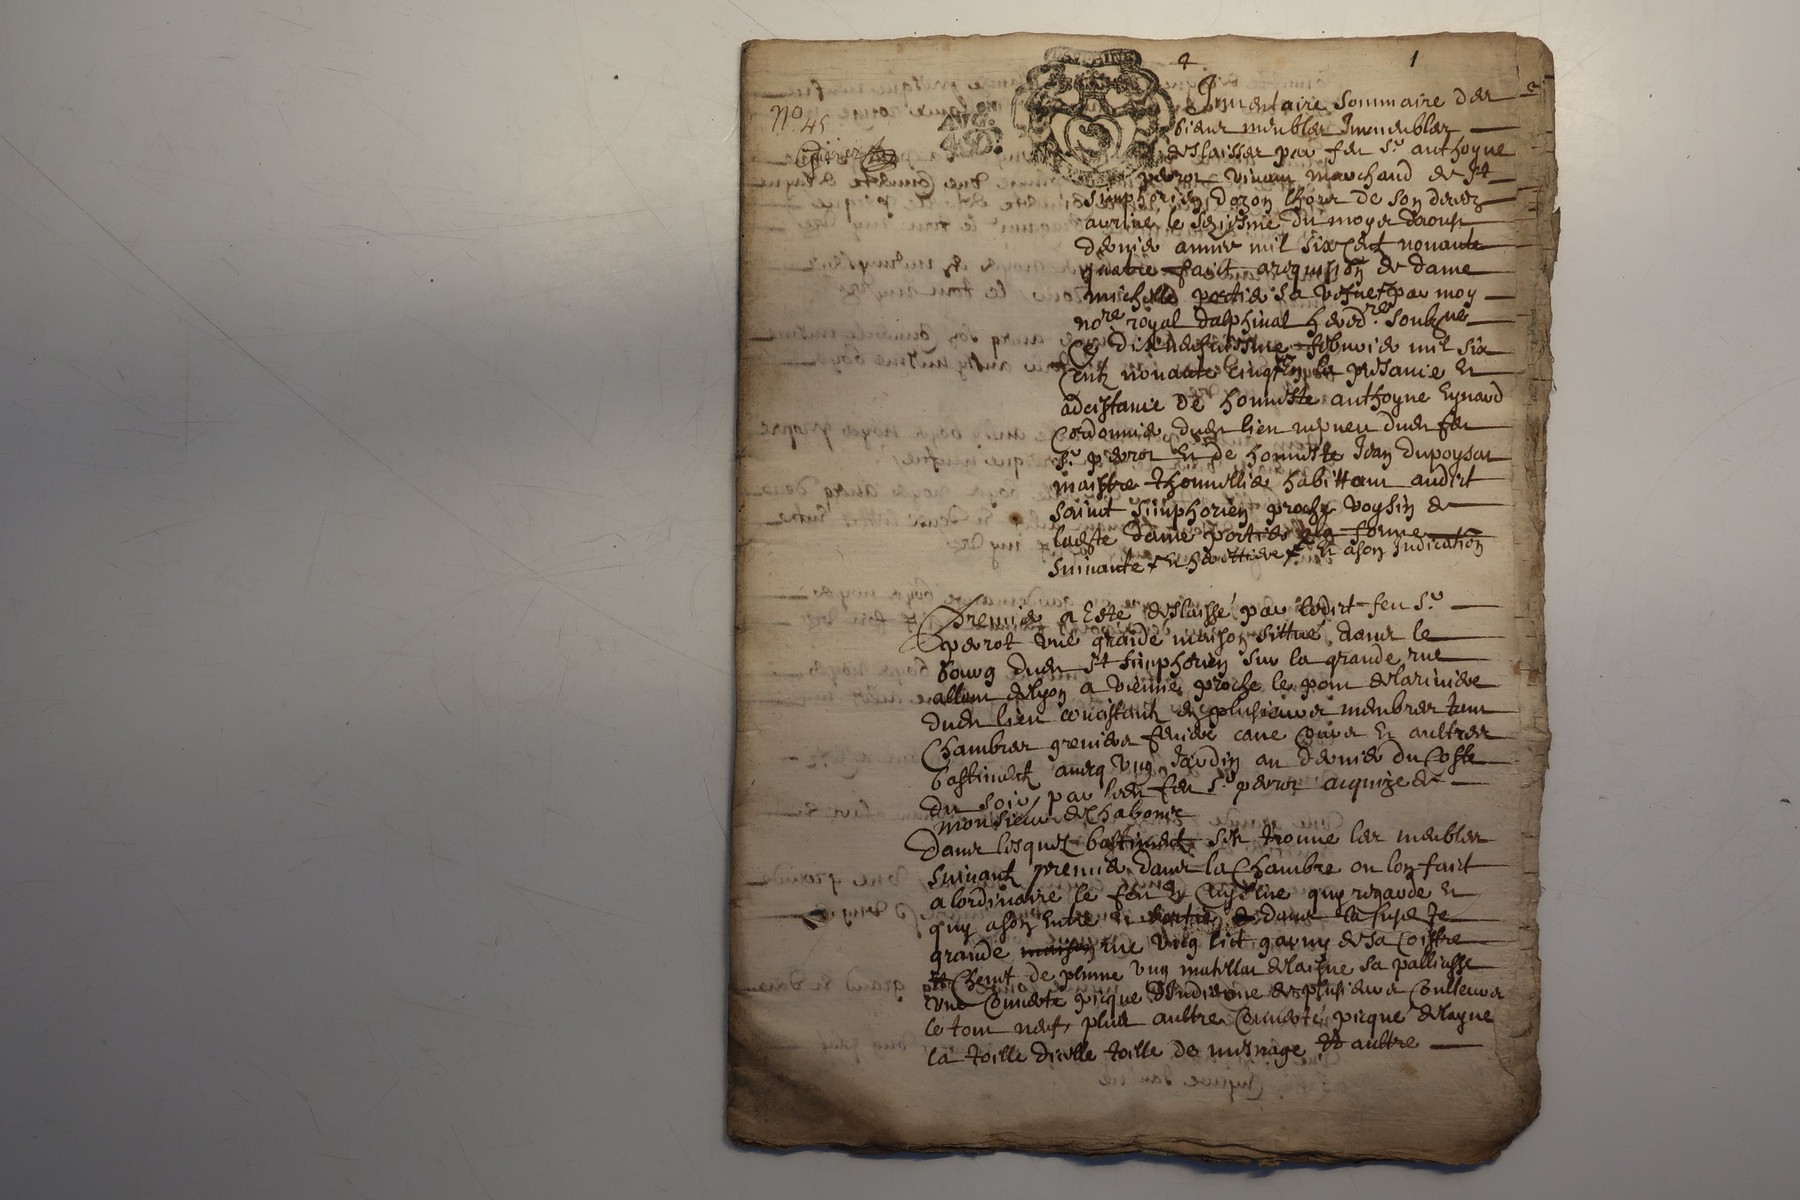 4 1
No 45
Inventaire sommaire des
biens meubles Immeubles
deslaisses par feu sr anthoyne
perrot vivant marchand de st
simphorien dozon lhors de son deces
arrivé le seziesme du moys daoust
dernier année mil six cent nonante
quatre faict a requisition de dame
michelle portier sa vefve par moy
nore royal dalphinal heredre soubzné
Ce disneufviesme febvrier mil six
Centz nonante Cinq En la presance Et
adcistance de honneste anthoyne Eynard
Cordonnier dudt lieu nepveu dudt feu
sr perrot Et de honneste Jean Dupoysat
maistre thonnellier habittant audict
saint simphorien proche voysin de
ladite dame portier en la forme
suivante & heritiere & Et a son Indication
Premier a Esté deslaissé par ledict feu sr
perrot une grande maison sittué dans le
bourg dudt st simphorien sur la grande rue
allant de lyon a vienne proche le pont de la riviere
dudt lieu concistant en plusieurs membres tant
Chambres greniers feniere cave Cours Et aultres
bastiments avecq ung Jardin au dernier du Coste
du soir par ledt feu sr perrot acquize de
monsieur de Chabons
Dans lesquelz bastiments sest trouvé les meubles
suivantz premier dans la Chambre ou lon faict
a lordinaire le feu Et Cuysine quy regarde Et
quy a son Entré et sortie dans la susdte
grande rue Ung lict garny de sa Coistre
Et Chevet de plume ung matellat de laisne sa palliasse
une Couverte picque dindienne de plusieurs Coulleurs
le tout neuf plus aultre Couverte picque de layne
la toille dicelle toille de mesnage Et aultre